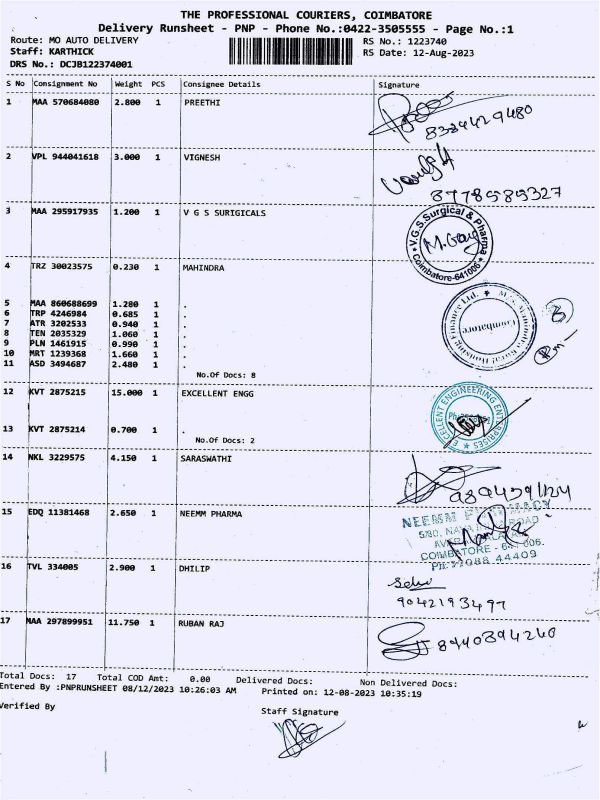 THE PROFESSIONAL COURIERS, COIMBATORE
Delivery Runsheet - PNP - Phone No.:0422-3505555 - Page No.:1
Route: MO AUTO DELIVERY RS No.: 1223740
Staff: KARTHICK RS Date: 12-Aug-2023
DRS No.: DCJB122374001
S No Consignment No Weight PCS Consignee Details Signature
1 MAA 570684080 2.800 1 PREETHI
8334429480
2 VPL 944041618 3.000 1 VIGNESH
8778589327
3 MAA 295917935 1.200 1 V G S SURIGICALS
V.G.S.Surgical & Pharma
Coimbatore-641006
4 TRZ 30023575 0.230 1 MAHINDRA
Coimbatore
5 MAA 860688699 1.280 1 .
6 TRP 4246984 0.685 1 .
7 ATR 3202533 0.940 1 .
8 TEN 2035329 1.060 1 .
9 PLN 1461915 0.990 1 .
10 MRT 1239368 1.660 1 .
11 ASD 3494687 2.480 1 .
No.Of Docs: 8
12 KVT 2875215 15.000 1 EXCELLENT ENGG
EXCELLENT ENGINEERING ENTERPRISES
13 KVT 2875214 0.700 1 .
No.Of Docs: 2
14 NKL 3229575 4.150 1 SARASWATHI
15 EDQ 11381468 2.650 1 NEEMM PHARMA
NEEMM PHARMACY
ROAD
COIMBATORE - 641 006.
44409
16 TVL 334005 2.900 1 DHILIP
9042193497
17 MAA 297899951 11.750 1 RUBAN RAJ
8940394240
Total Docs: 17 Total COD Amt: 0.00 Delivered Docs: Non Delivered Docs:
Entered By :PNPRUNSHEET 08/12/2023 10:26:03 AM Printed on: 12-08-2023 10:35:19
Verified By
Staff Signature